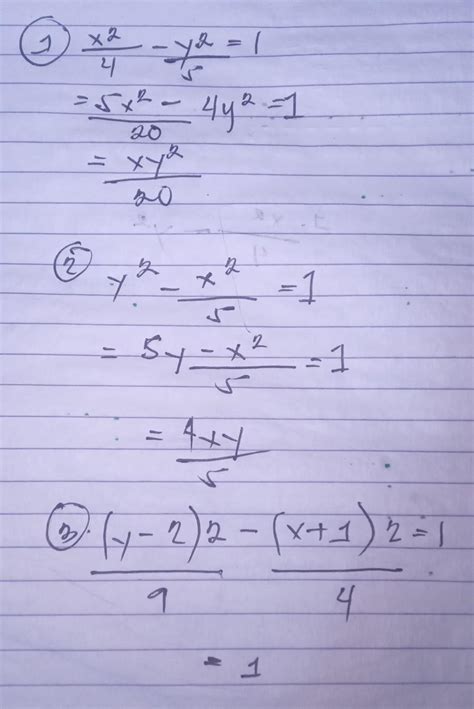 1 x²/4 - y²/5 = 1
= 5x² - 4y²/20 = 1
= xy²/20
2 y² - x²/5 = 1
= 5y - x²/5 = 1
= 4xy/5
3. (y-2)2/9 - (x+1)2/4 = 1
= 1